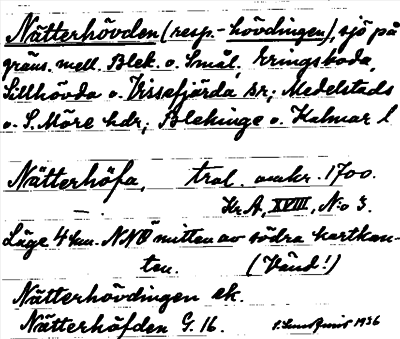 Nätterhövden (resp. -hövdingen), sjö på
gräns. mell. Blek. o. Smål, Eringsboda,
Sillhövda o. Vissefjärda sr; Medelstads
o. S. Möre hdr; Blekinge o. Kalmar l
Nätterhöfa, trol. omkr. 1700.
Kr A, XVIII, No 3.
Läge 4 km. NNV mitten av södra kartkan-
ten. (Vänd!)
Nätterhövdingen ek.
Nätterhöfden G. 16. 1936